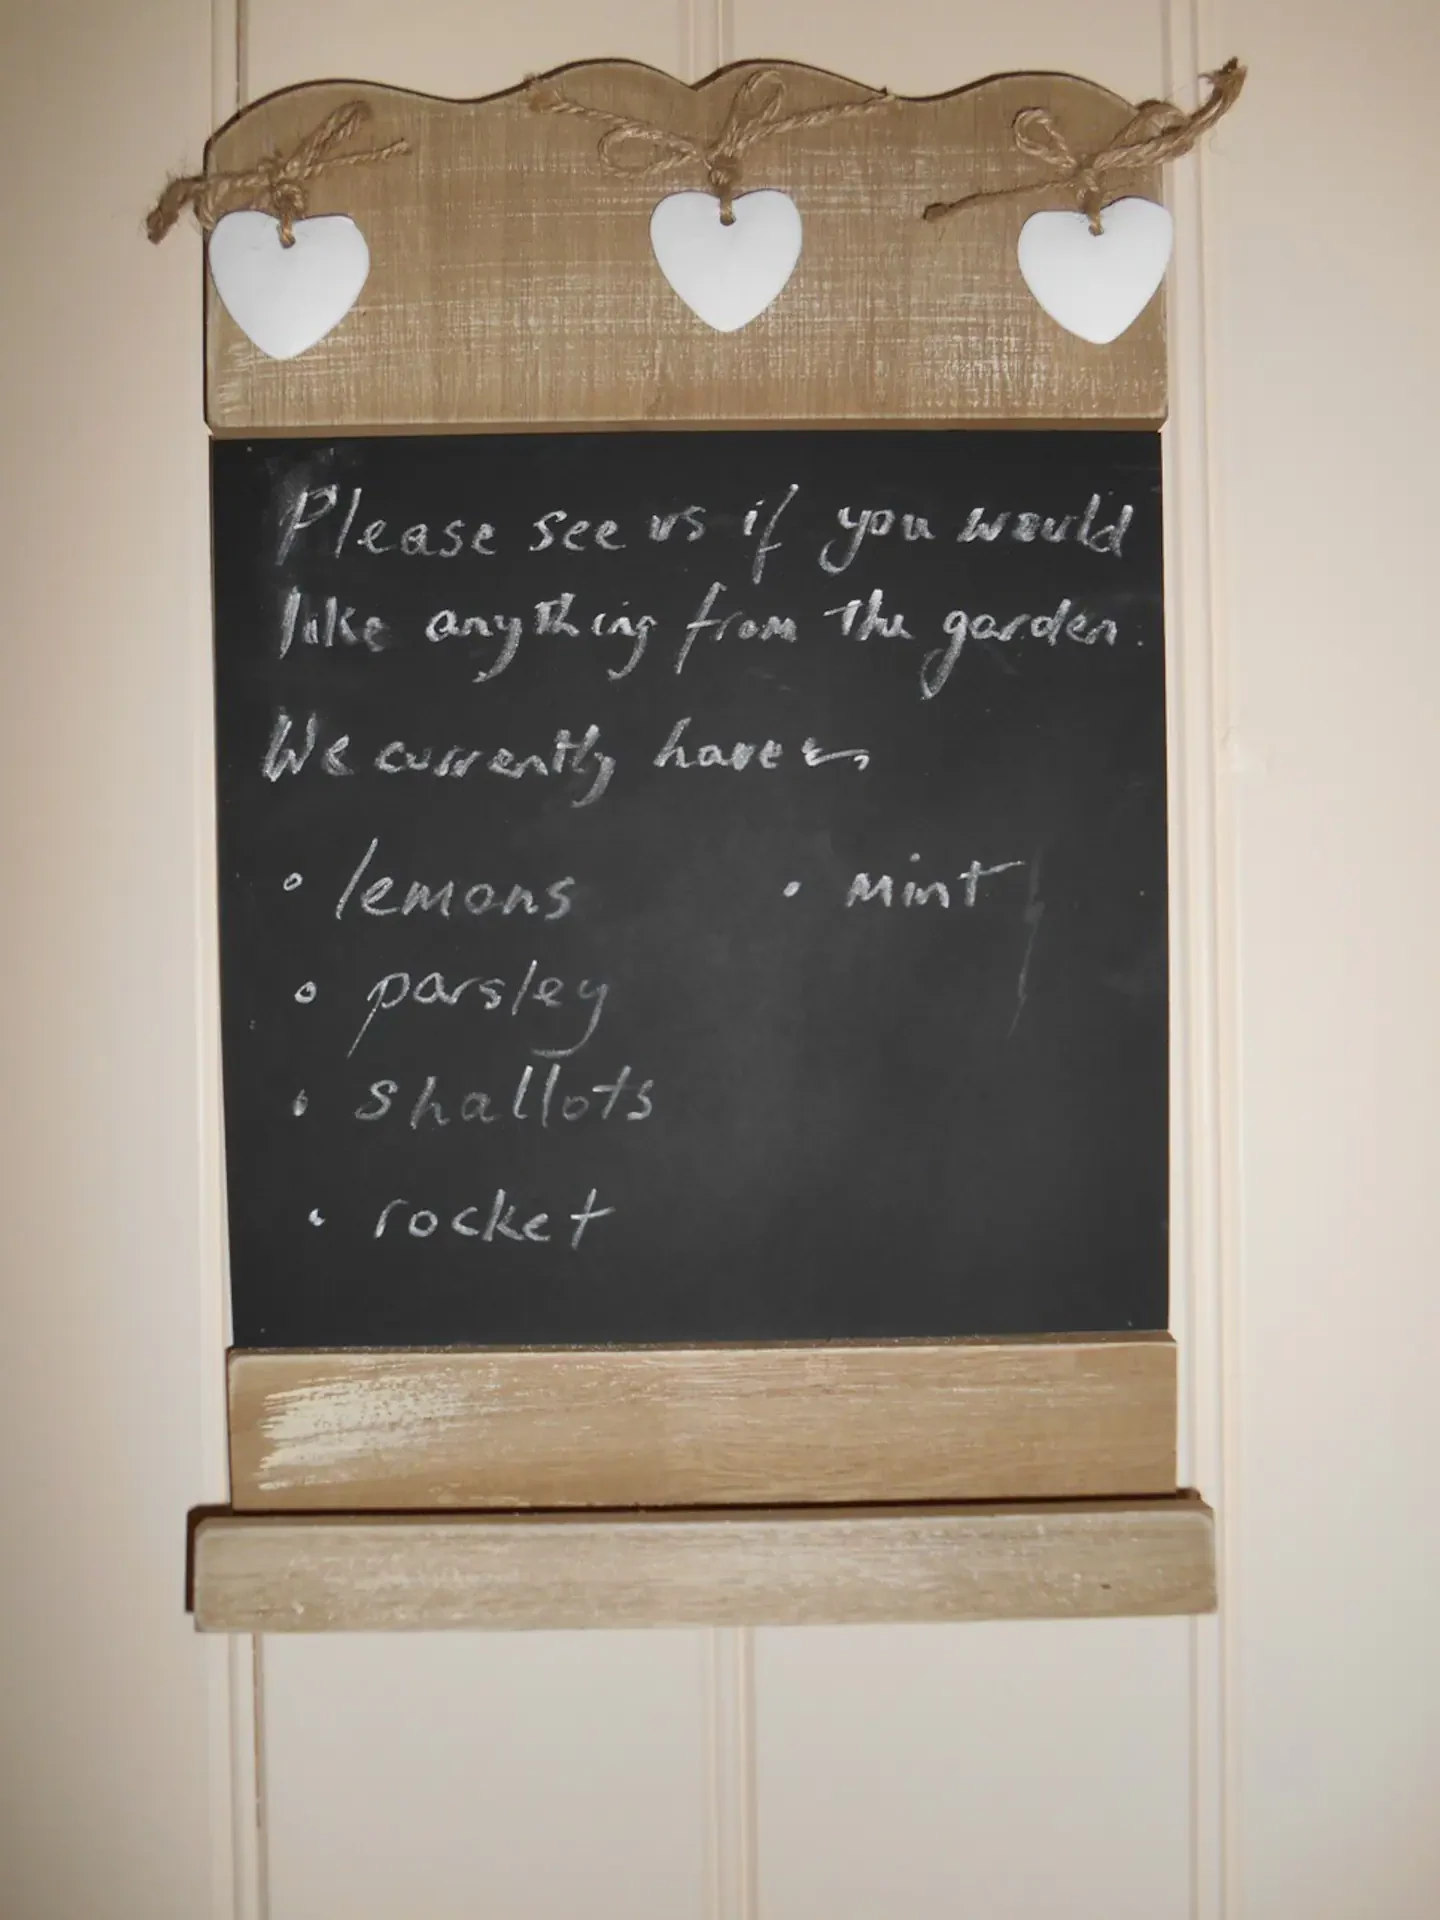 Please see us if you would
like anything from the garden.
We currently have
• lemons
• parsley
• shallots
• rocket
• mint